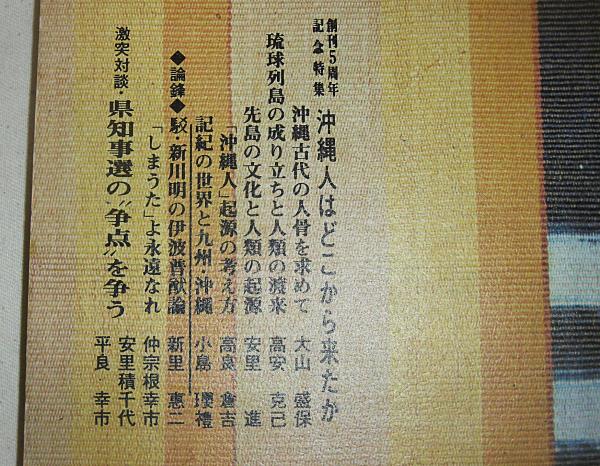 創刊5周年
記念特集
沖縄人はどこから来たか
沖縄古代の人骨を求めて 大山 盛保
琉球列島の成り立ちと人類の渡来 高安 克己
先島の文化と人類の起源 安里 進
「沖縄人」起源の考え方 高良 倉吉
記紀の世界と九州・沖縄 小島 瓔禮
◆論鋒◆ 駁・新川明の伊波普猷論 新里 恵二
「しまうた」よ永遠なれ 仲宗根幸市
激突対談・県知事選の〝争点〟を争う 安里積千代
平良 幸市